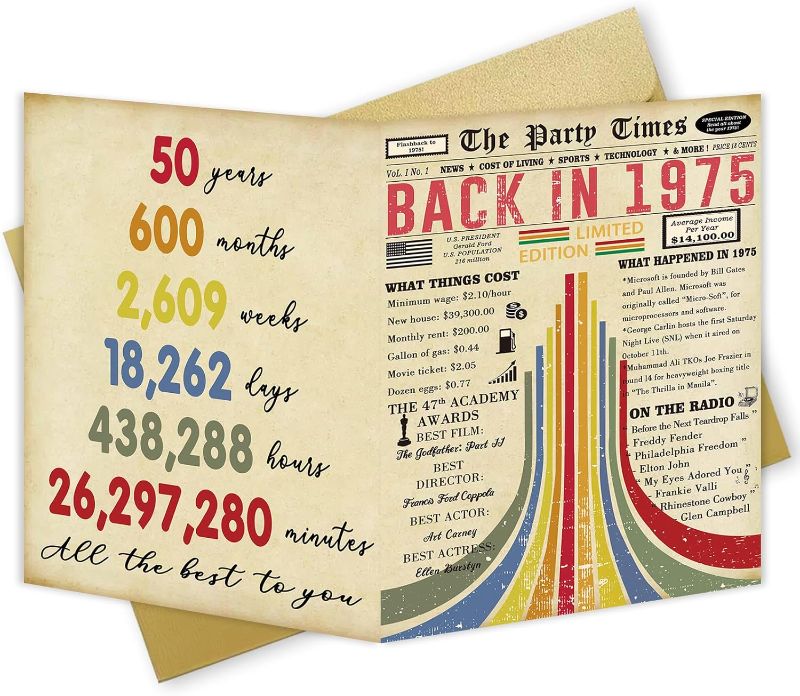 50 years
600 months
2,609 weeks
18,262 days
438,288 hours
26,297,280 minutes
All the best to you
Flashback to
1975!
The Party Times
SPECIAL EDITION
Read all about
the year 1975!
VOL. 1 No. 1 NEWS ★ COST OF LIVING ★ SPORTS ★ TECHNOLOGY ★ & MORE! PRICE 18 CENTS
BACK IN 1975
U.S. PRESIDENT
Gerald Ford
U.S. POPULATION
216 million
LIMITED
EDITION
Average Income
Per Year
$14,100.00
WHAT THINGS COST
Minimum wage: $2.10/hour
New house: $39,300.00
Monthly rent: $200.00
Gallon of gas: $0.44
Movie ticket: $2.05
Dozen eggs: $0.77
THE 47th ACADEMY
AWARDS
BEST FILM:
The Godfather: Part II
BEST
DIRECTOR:
Francis Ford Coppola
BEST ACTOR:
Art Carney
BEST ACTRESS:
Ellen Burstyn
WHAT HAPPENED IN 1975
*Microsoft is founded by Bill Gates
and Paul Allen. Microsoft was
originally called "Micro-Soft", for
microprocessors and software.
*George Carlin hosts the first Saturday
Night Live (SNL) when it aired on
October 11th.
*Muhammad Ali TKOs Joe Frazier in
round 14 for heavyweight boxing title
in "The Thrilla in Manila".
ON THE RADIO
" Before the Next Teardrop Falls "
- Freddy Fender
" Philadelphia Freedom "
- Elton John
" My Eyes Adored You "
- Frankie Valli
" Rhinestone Cowboy "
- Glen Campbell